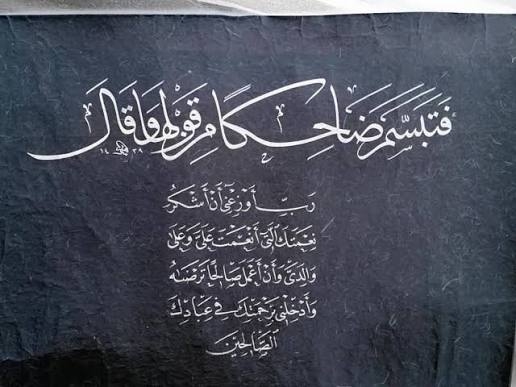 فَتَبَسَّمَ ضَاحِكًا مِنْ قَوْلِهَا وَقَالَ
١٤٣٩
رَبِّ أَوْزِعْنِي أَنْ أَشْكُرَ
نِعْمَتَكَ الَّتِي أَنْعَمْتَ عَلَيَّ وَعَلَى
وَالِدَيَّ وَأَنْ أَعْمَلَ صَالِحًا تَرْضَاهُ
وَأَدْخِلْنِي بِرَحْمَتِكَ فِي عِبَادِكَ
الصَّالِحِينَ